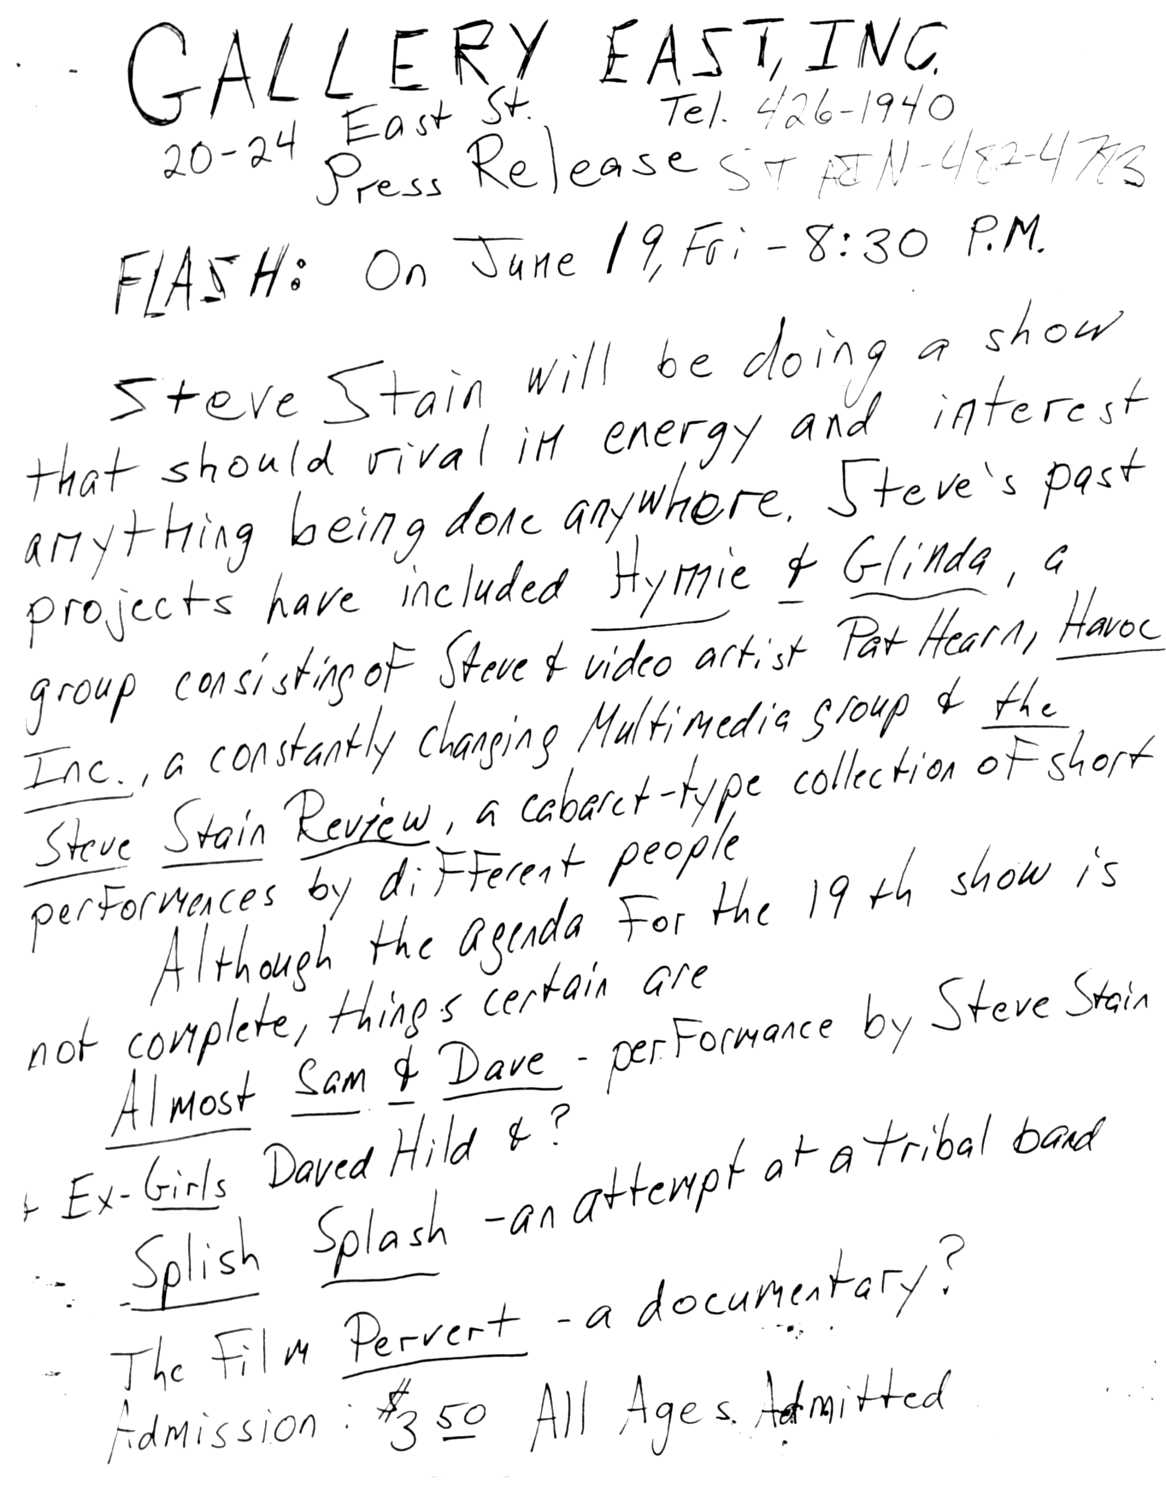 GALLERY EAST, INC.
20-24 East St. Tel. 426-1940
Press Release STAIN-482-4783
FLASH: On June 19, Fri - 8:30 P.M.
Steve Stain will be doing a show
that should rival in energy and interest
anything being done anywhere. Steve's past
projects have included Hymie & Glinda, a
group consisting of Steve & video artist Pat Hearn, Havoc
Inc., a constantly changing Multimedia group & the
Steve Stain Review, a cabaret-type collection of short
performences by different people
Although the agenda For the 19th show is
not complete, things certain are
Almost Sam & Dave - performance by Steve Stain
+ Ex-Girls Daved Hild & ?
Splish Splash - an attempt at a tribal band
The Film Pervert - a documentary?
Admission: $3.50 All Ages Admitted